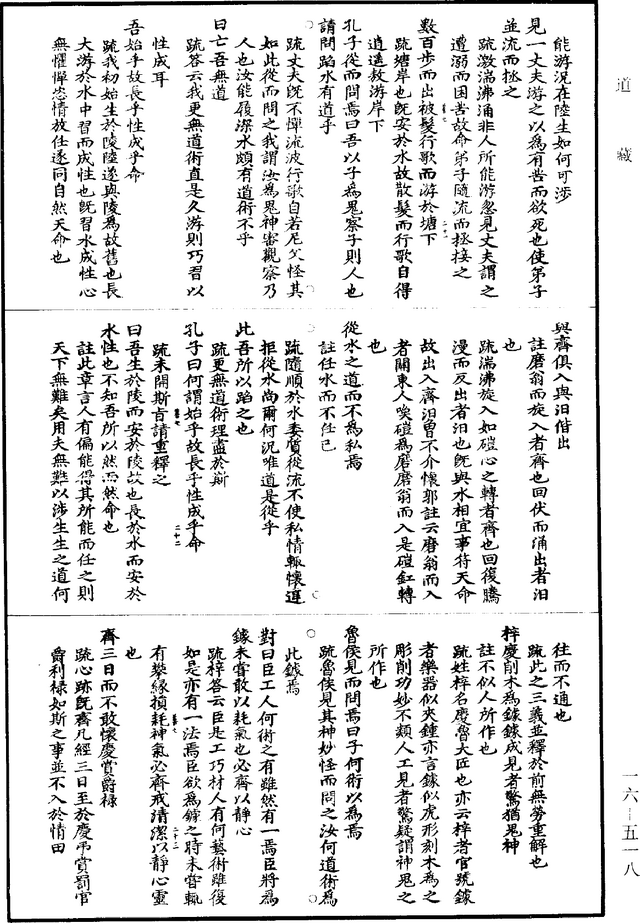 道藏
能游況在陸生如何可涉
見一丈夫游之以為有苦而欲死也使弟子
並流而拯之
疏激湍沸涌非人所能游忽見丈夫謂之
遭溺而困苦故命弟子隨流而拯接之
數百步而出被髮行歌而游於塘下
疏塘岸也既安於水故散髮而行歌自得
逍遙敖游岸下
孔子從而問焉曰吾以子為鬼察子則人也
請問蹈水有道乎
疏丈夫既不憚流波行歌自若尼父怪其
如此從而問之我謂汝為鬼神審觀察乃
人也汝能履深水頗有道術不乎
曰亡吾無道
疏答云我更無道術直是久游則巧習以
性成耳
吾始乎故長乎性成乎命
疏我初始生於陵陸遂與陵為故舊也長
大游於水中習而成性也既習水成性心
無懼憚恣情放任遂同自然天命也
與齊俱入與汨偕出
註磨翁而旋入者齊也回伏而涌出者汨
也
疏湍沸旋入如磑心之轉者齊也回復騰
漫而反出者汨也既與水相宜事符天命
故出入齊汨曾不介懷郭註云磨翁而入
者關東人喚磑為磨磨翁而入是磑釭轉
也
從水之道而不為私焉
註任水而不任己
疏隨順於水委質從流不使私情輒懷違
拒從水尚爾何況唯道是從乎
此吾所以蹈之也
疏更無道術理盡於斯
孔子曰何謂始乎故長乎性成乎命
疏未開斯旨請重釋之
曰吾生於陵而安於陵故也長於水而安於
水性也不知吾所以然而然命也
註此章言人有偏能得其所能而任之則
天下無難矣用夫無難以涉生生之道何
往而不通也
疏此之三義並釋於前無勞重解也
梓慶削木為鐻鐻成見者驚猶鬼神
註不似人所作也
疏姓梓名慶魯大匠也亦云梓者官號鐻
者樂器似夾鍾亦言鐻似虎形刻木為之
彫削功妙不類人工見者驚疑謂神鬼之
所作也
魯侯見而問焉曰子何術以為焉
疏魯侯見其神妙怪而問之汝何道術為
此鐻焉
對曰臣工人何術之有雖然有一焉臣將為
鐻未嘗敢以耗氣也必齊以靜心
疏梓答云臣是工巧材人有何藝術雖復
如是亦有一法焉臣欲為鐻之時未嘗輒
有攀緣損耗神氣必齊戒清潔以靜心靈
也
齊三日而不敢懷慶賞爵祿
疏心跡既齊凡經三日至於慶弔賞罰官
爵利祿如斯之事並不入於情田
一六—五一八